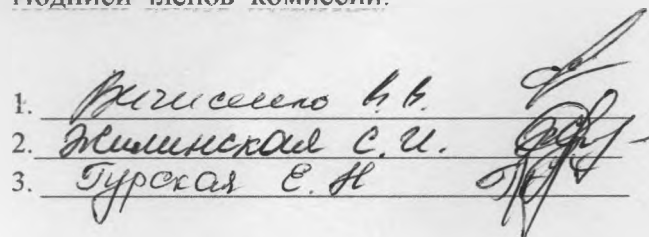 Подписи членов комиссии:
1. В. В.
2. Жилинская С. И.
3. Гурская Е. Н